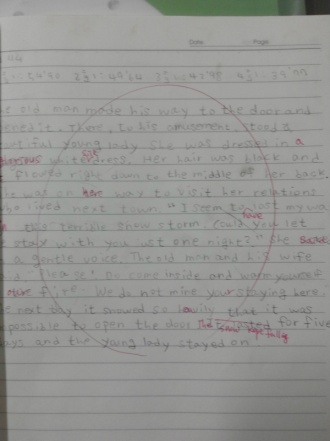 Date. Page.
94
1 2 49'64 3 4
he old man made his way to the door and
ened it. There, to his amusement, stood a
utiful young lady. She was dressed in a
white dress. silk Her hair was black and
flowed right down to the middle of her back.
he was on her way to visit her relations
ho lived next town. "I seem to last my wa
have
this terrible snow storm. Could you let
stay with you ust one night?" she
a gentle voice. The old man and his wife
"Please". Do come inside and warm yourself
fire. We do not mine your staying here.
e next day it snowed so that it was
possible to open the door. The snow kept falling for five
ays and the young lady stayed on.